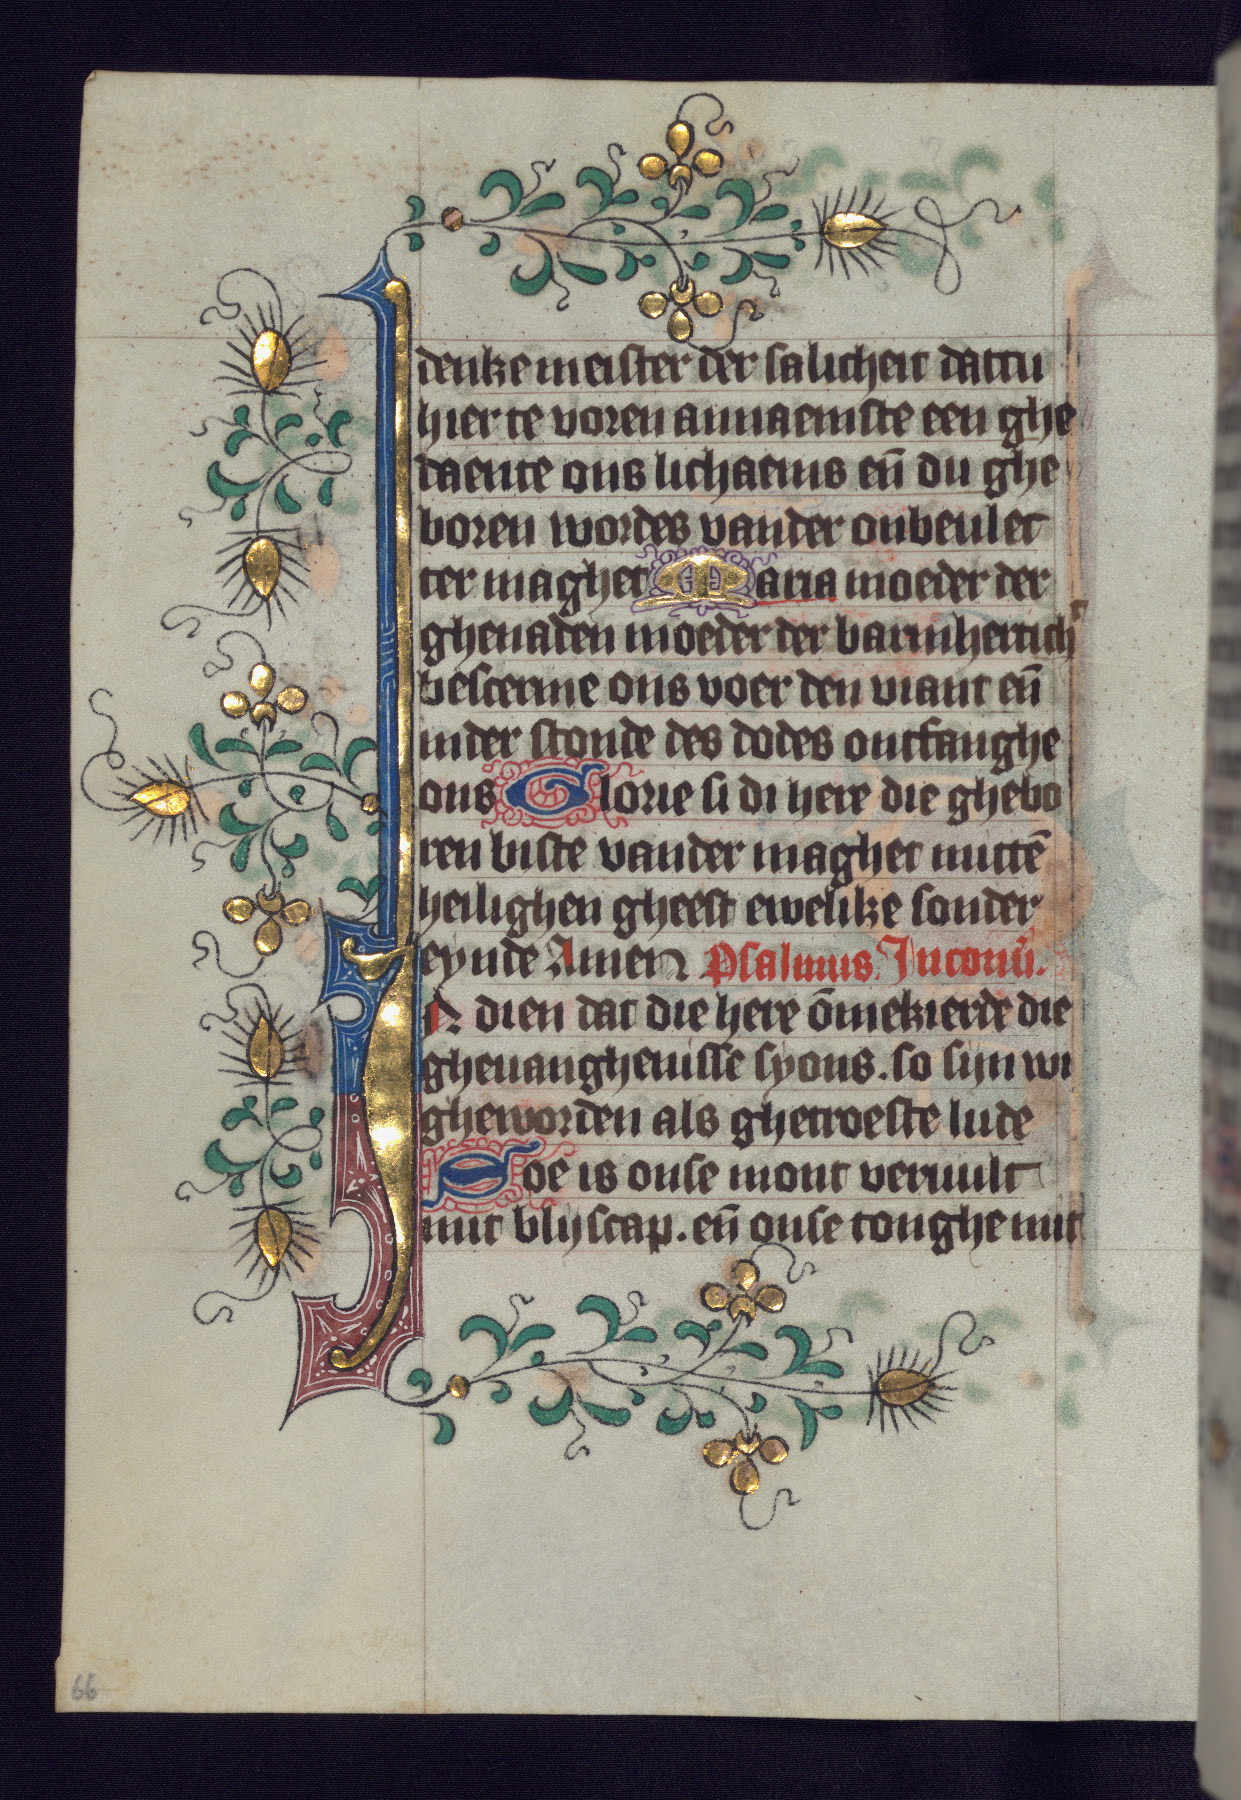 denke meister der salicheit dattu
hier te voren annaemste een ghe
daente ons lichaems en̄ du ghe
boren wordes vander onbeulec
ter maghet Maria moeder der
ghenaden moeder der barmhertich
bescerme ons voer den viant en̄
inder stonde des dodes ontfanghe
ons Glorie si di here die ghebo
ren biste vander maghet mittē
heilighen gheest ewelike sonder
eynde Amen Psalmus. In conū.
In dien dat die here ōmekierde die
gheuanghenisse syons. so sijn wi
gheworden als ghetroeste lude
Doe is onse mont veruult
mit blijscap. en̄ onse tonghe mit
66